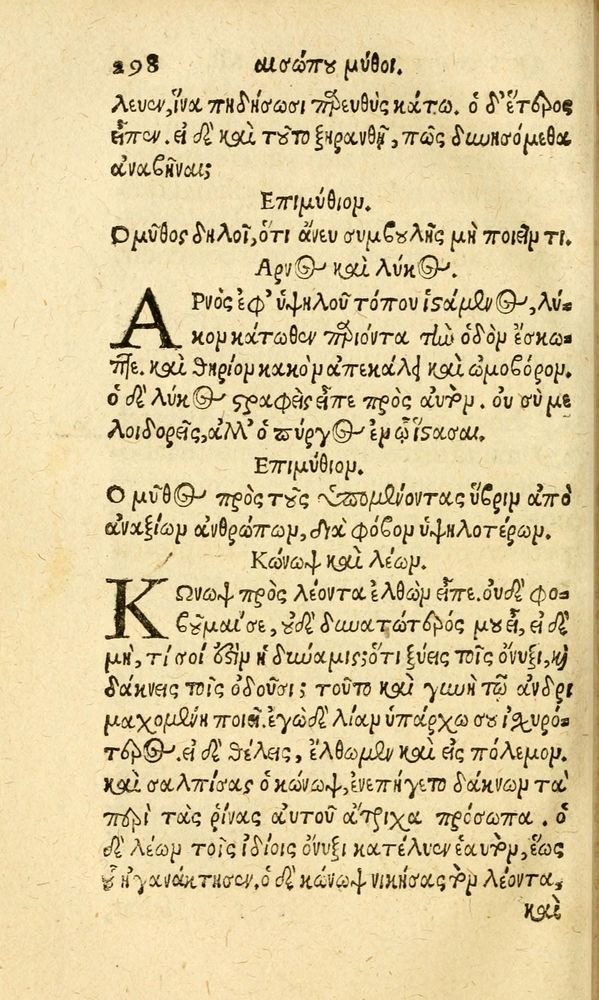 298 αισώπου μύθοι.
λευεν, ἵνα πηδήσωσι πρευθὺς κάτω. ὁ δ' ἕτερος
εἶπεν. εἰ δὲ καὶ τοῦτο ξηρανθῇ, πῶς δυνησόμεθα
ἀναβῆναι;
Επιμύθιον.
Ο μῦθος δηλοῖ, ὅτι ἄνευ συμβουλῆς μὴ ποιεῖν τι.
Αρνὸς καὶ λύκος.
ΑΡνὸς ἐφ' ὑψηλοῦ τόπου ἱσάμενος, λύ-
κον κάτωθεν πριόντα τὴν ὁδὸν ἔσκω-
πτε. καὶ θηρίον κακὸν ἀπεκάλει καὶ ὠμοβόρον.
ὁ δὲ λύκος στραφεὶς εἶπε πρὸς αυτόν. ου σύ με
λοιδορεῖς, ἀλλ' ὁ πύργος ἐν ᾧ ἵστασαι.
Επιμύθιον.
Ο μῦθος πρὸς τοὺς ὑπομένοντας ὕβριν ἀπὸ
ἀναξίων ἀνθρώπων, διὰ φόβον ὑψηλοτέρων.
Κώνωψ καὶ λέων.
ΚΩνωψ πρὸς λέοντα ἐλθὼν εἶπε. οὐδὲ φο-
βοῦμαί σε, οὐδὲ δυνατώτερός μου εἶ, εἰ δὲ
μὴ, τί σοί ἐστιν ἡ δύναμις; ὅτι ξύεις τοῖς ὄνυξι, καὶ
δάκνεις τοῖς ὀδοῦσι; τοῦτο καὶ γυνὴ τῷ ἀνδρὶ
μαχομένη ποιεῖ. ἐγὼ δὲ λίαν ὑπάρχω σου ἰσχυρό-
τερος. εἰ δὲ θέλεις, ἔλθωμεν καὶ εἰς πόλεμον.
καὶ σαλπίσας ὁ κώνωψ, ἐνεπήγετο δάκνων τὰ
περὶ τὰς ῥίνας αυτοῦ ἄτριχα πρόσωπα. ὁ
δὲ λέων τοῖς ἰδίοις ὄνυξι κατέλυεν ἑαυτόν, ἕως
οὗ ἠγανάκτησεν. ὁ δὲ κώνωψ νικήσας τὸν λέοντα,
καὶ